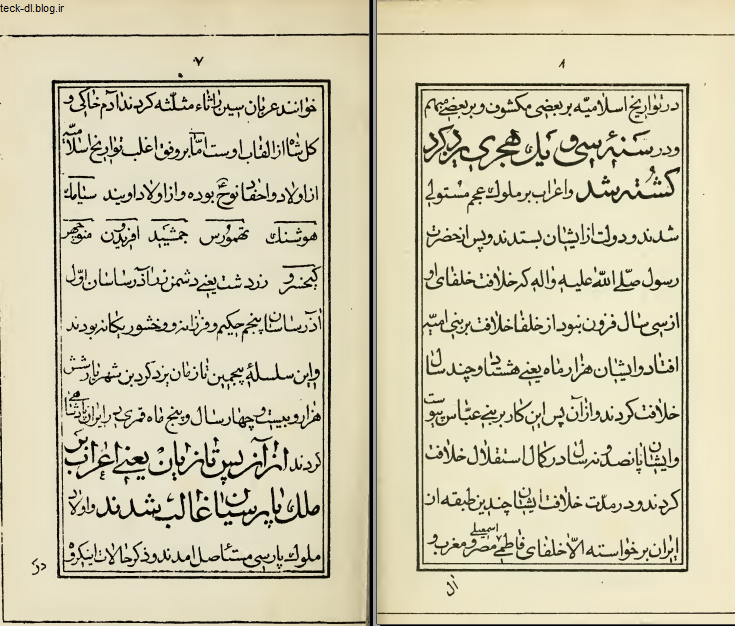 teck-dl.blog.ir
۷
خوانند عربان سین را ثاء مثلثه کردند آدم خاکی و
کل شاه از القاب اوست اما بر وفق اغلب تواریخ اسلامیه
از اولاد و احفاد نوح بوده و از اولاد اویند سیامک
هوشنک تهمورس جمشید افریدون منوچهر
کیخسرو زردشت یعنی دشمن زند آذر ساسان اول
آذر ساسان پنجم حکیم و فرزانه و وخشور یکانه بودند
و این سلسله پنجمین تا زمان یزدکرد بن شهریار شش
هزار و بیست و چهار سال و پنج ماه قمری در ایران پادشاهی
کردند از آن پس تازیان یعنی اعراب بر
ملک پارسیان غالب شدند و اولاد
ملوک پارسی مستاصل امدند و ذکر حالات اینکروه
در
۸
در تواریخ اسلامیه بر بعضی مکشوف و بر بعضی مبهم
و در سنه سی و یک هجری یزدکرد
کشته شد و اعراب بر ملوک عجم مستولی
شدند و دولت از ایشان بستدند و پس از حضرت
رسول صلی الله علیه و اله که خلافت خلفای او
از سی سال فزون نبود از خلفا خلافت بر بنی امیه
افتاد و ایشان هزار ماه یعنی هشتاد و چند سال
خلافت کردند و از آن پس این کار بر بنی عباس پیوست
و ایشان پانصد و نه سال در کمال استقلال خلافت
کردند و در مدت خلافت ایشان چندین طبقه از
ایران برخواسته الا خلفای فاطمی اسمعیلی مصر و مغرب و
ال